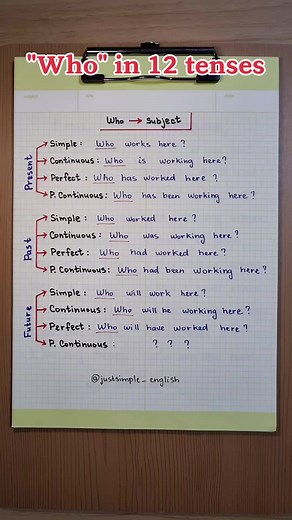 "Who" in 12 tenses
Who → Subject
Present
Simple : Who works here ?
Continuous : Who is working here ?
Perfect : Who has worked here ?
P. Continuous : Who has been working here ?
Past
Simple : Who worked here ?
Continuous : Who was working here ?
Perfect : Who had worked here ?
P. Continuous : Who had been working here ?
Future
Simple : Who will work here ?
Continuous : Who will be working here ?
Perfect : Who will have worked here ?
P. Continuous : ? ? ?
@justsimple_english